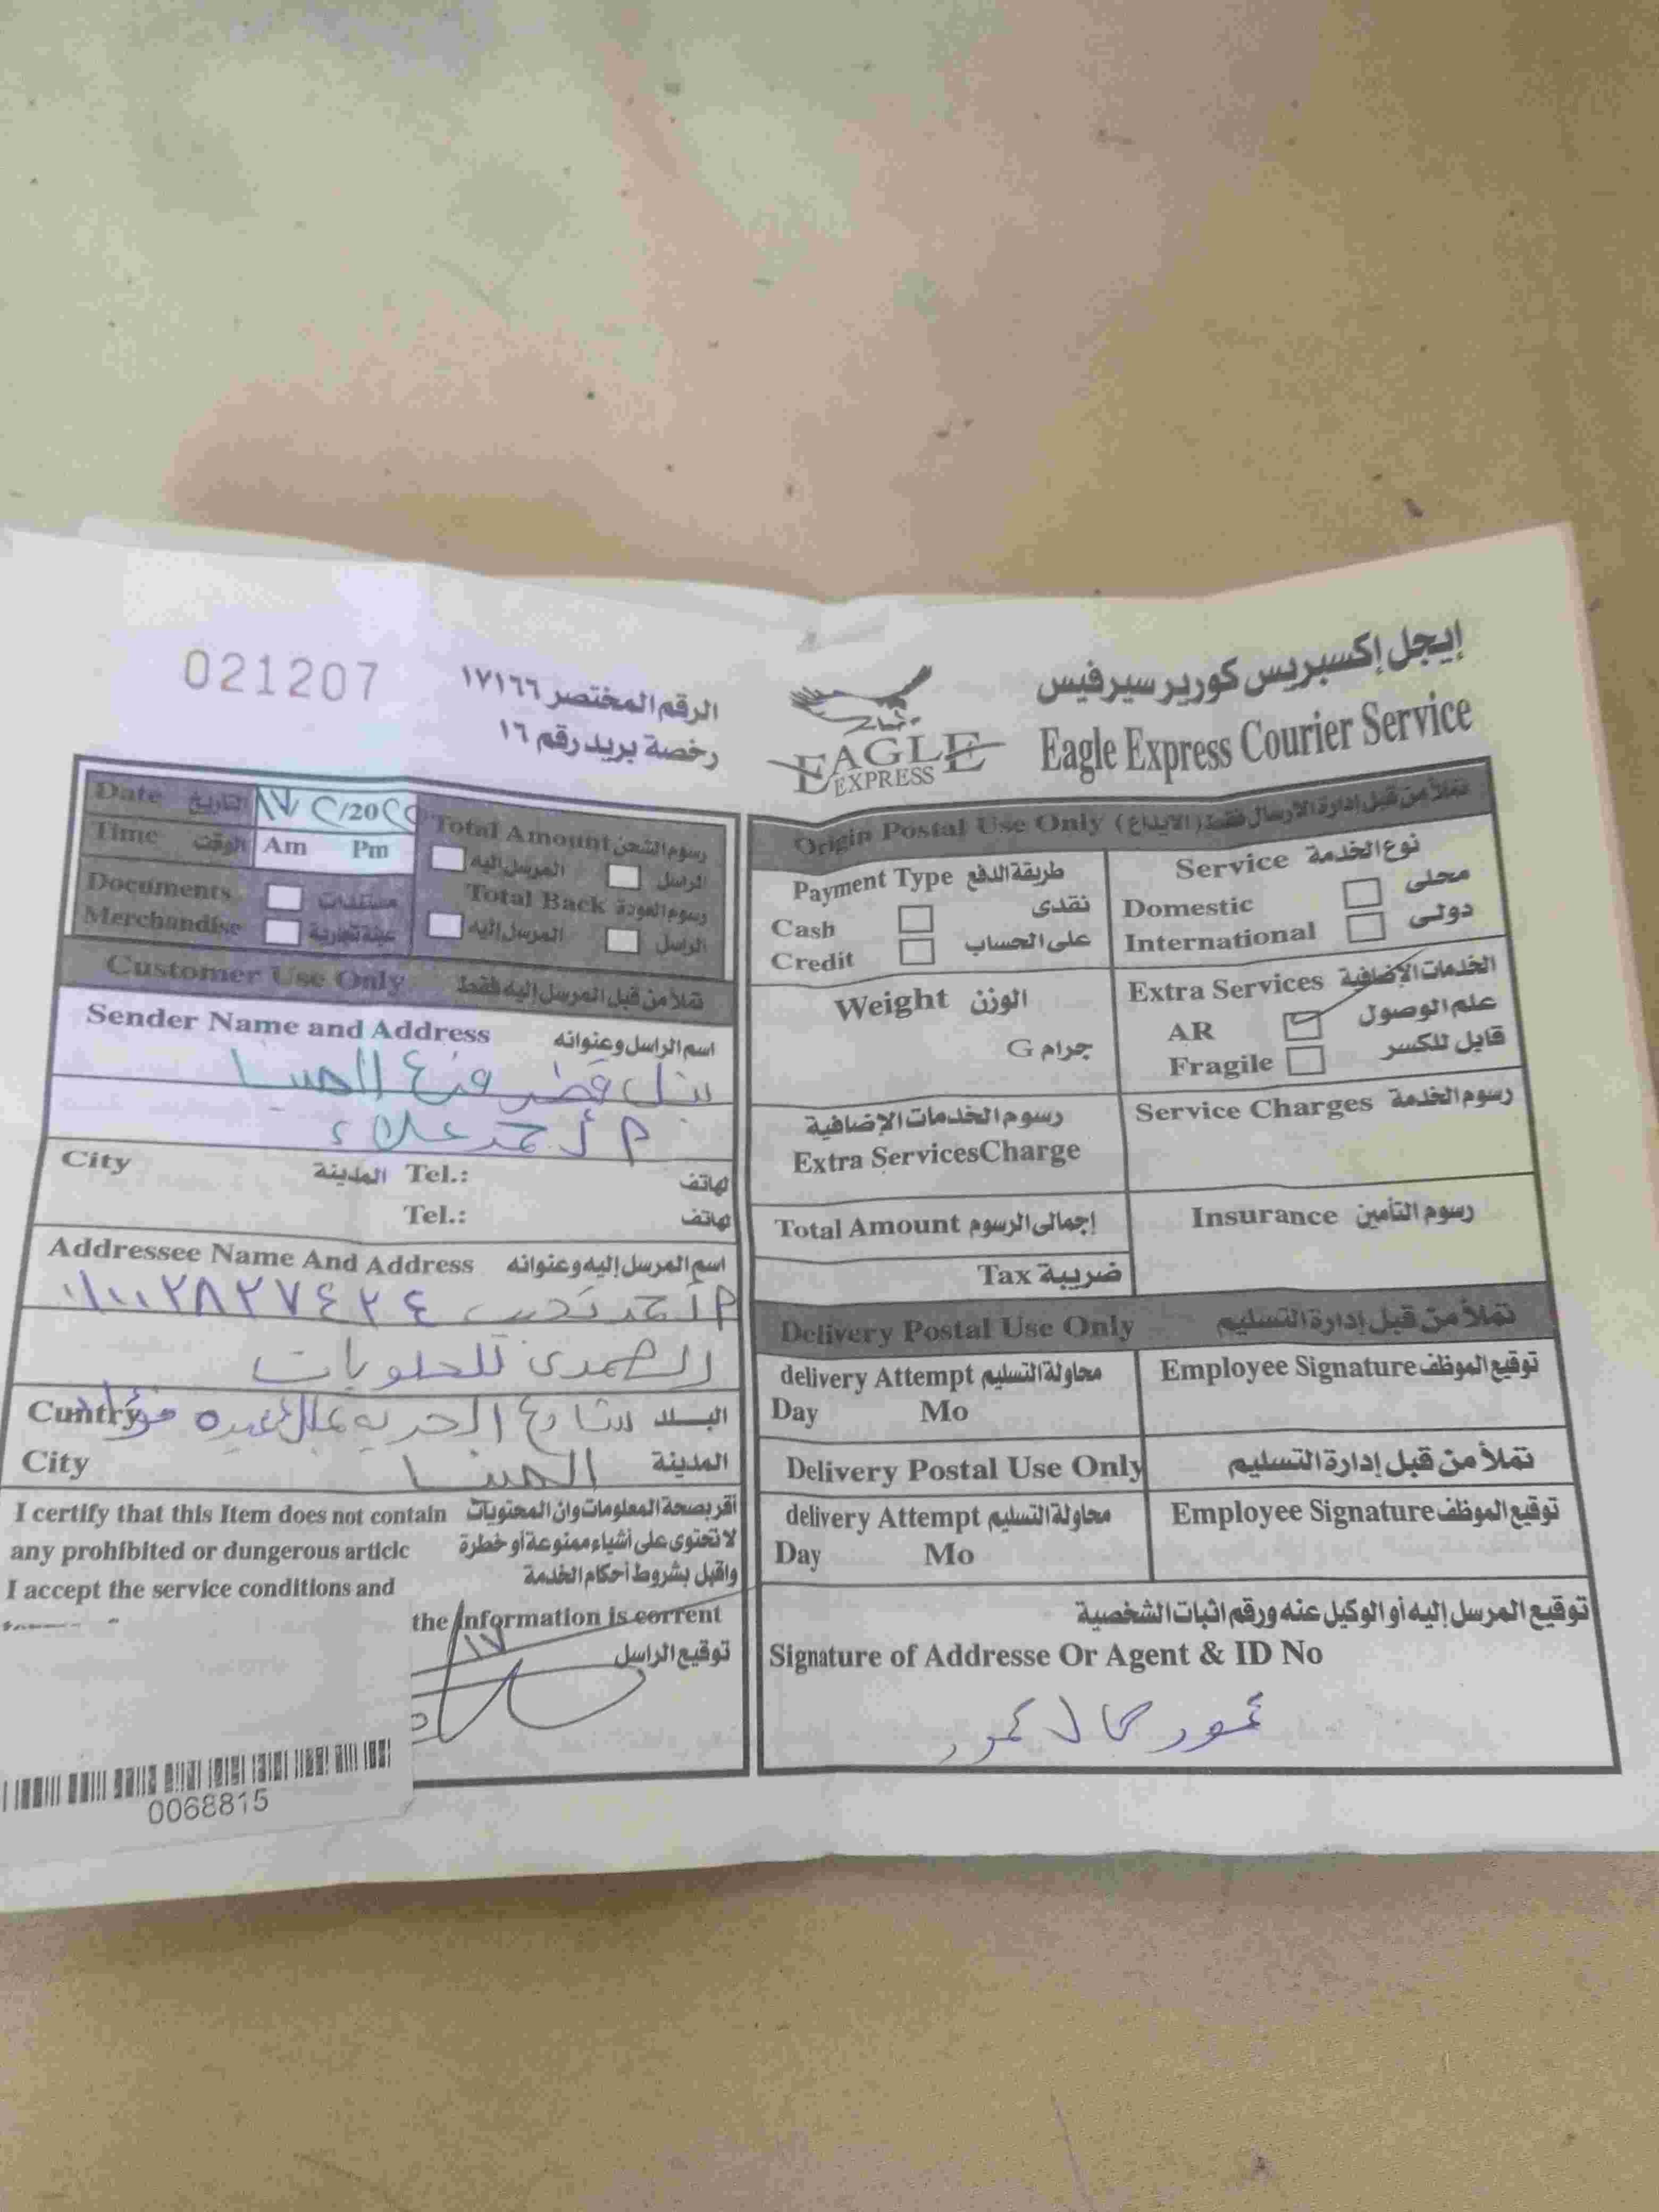 إيجل إكسبريس كورير سيرفيس
Eagle Express Courier Service
EAGLE
EXPRESS
الرقم المختصر ١٧١٦٦
رخصة بريد رقم ١٦
021207
Date التاريخ /20
Time الوقت Am Pm
Documents مستندات
Merchandise عينة تجارية
Total Amount رسوم الشحن
الراسل المرسل اليه
Total Back رسوم العودة
الراسل المرسل اليه
Customer Use Only تملأ من قبل المرسل إليه فقط
Sender Name and Address اسم الراسل وعنوانه
بنك قطر فرع المنيا
م أحمد علاء
City المدينة Tel.: هاتف
Tel.: هاتف
Addressee Name And Address اسم المرسل إليه وعنوانه
م أحمد ٠١٠٠٢٨٢٧٤٢٤
الصمدى للحلويات
Cuntry البلد شارع الحرية
City المدينة المنيا
I certify that this Item does not contain أقر بصحة المعلومات وان المحتويات
any prohibited or dungerous article لا تحتوى على أشياء ممنوعة أو خطرة
I accept the service conditions and واقبل بشروط أحكام الخدمة
the Information is corrent
توقيع الراسل
0068815
Origin Postal Use Only تملأ من قبل إدارة الارسال فقط (الايداع)
Payment Type طريقة الدفع
Cash نقدى
Credit على الحساب
Service نوع الخدمة
Domestic محلى
International دولى
Weight الوزن
G جرام
Extra Services الخدمات الإضافية
AR علم الوصول
Fragile قابل للكسر
رسوم الخدمات الإضافية
Extra ServicesCharge
Service Charges رسوم الخدمة
Total Amount إجمالى الرسوم
Insurance رسوم التأمين
Tax ضريبة
Delivery Postal Use Only تملأ من قبل إدارة التسليم
delivery Attempt محاولة التسليم
Day Mo
Employee Signature توقيع الموظف
Delivery Postal Use Only تملأ من قبل إدارة التسليم
delivery Attempt محاولة التسليم
Day Mo
Employee Signature توقيع الموظف
توقيع المرسل إليه أو الوكيل عنه ورقم اثبات الشخصية
Signature of Addresse Or Agent & ID No